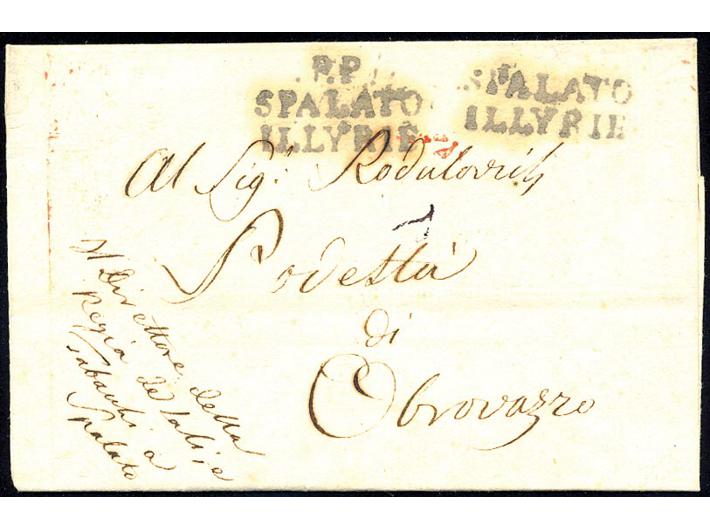 P.P.
SPALATO
ILLYRIE
SPALATO
ILLYRIE
Al Sig: Radulovich
Podestà
di
Obrovazzo
Il Direttore della
Regia de Sali, e
Tabacchi a
Spalato